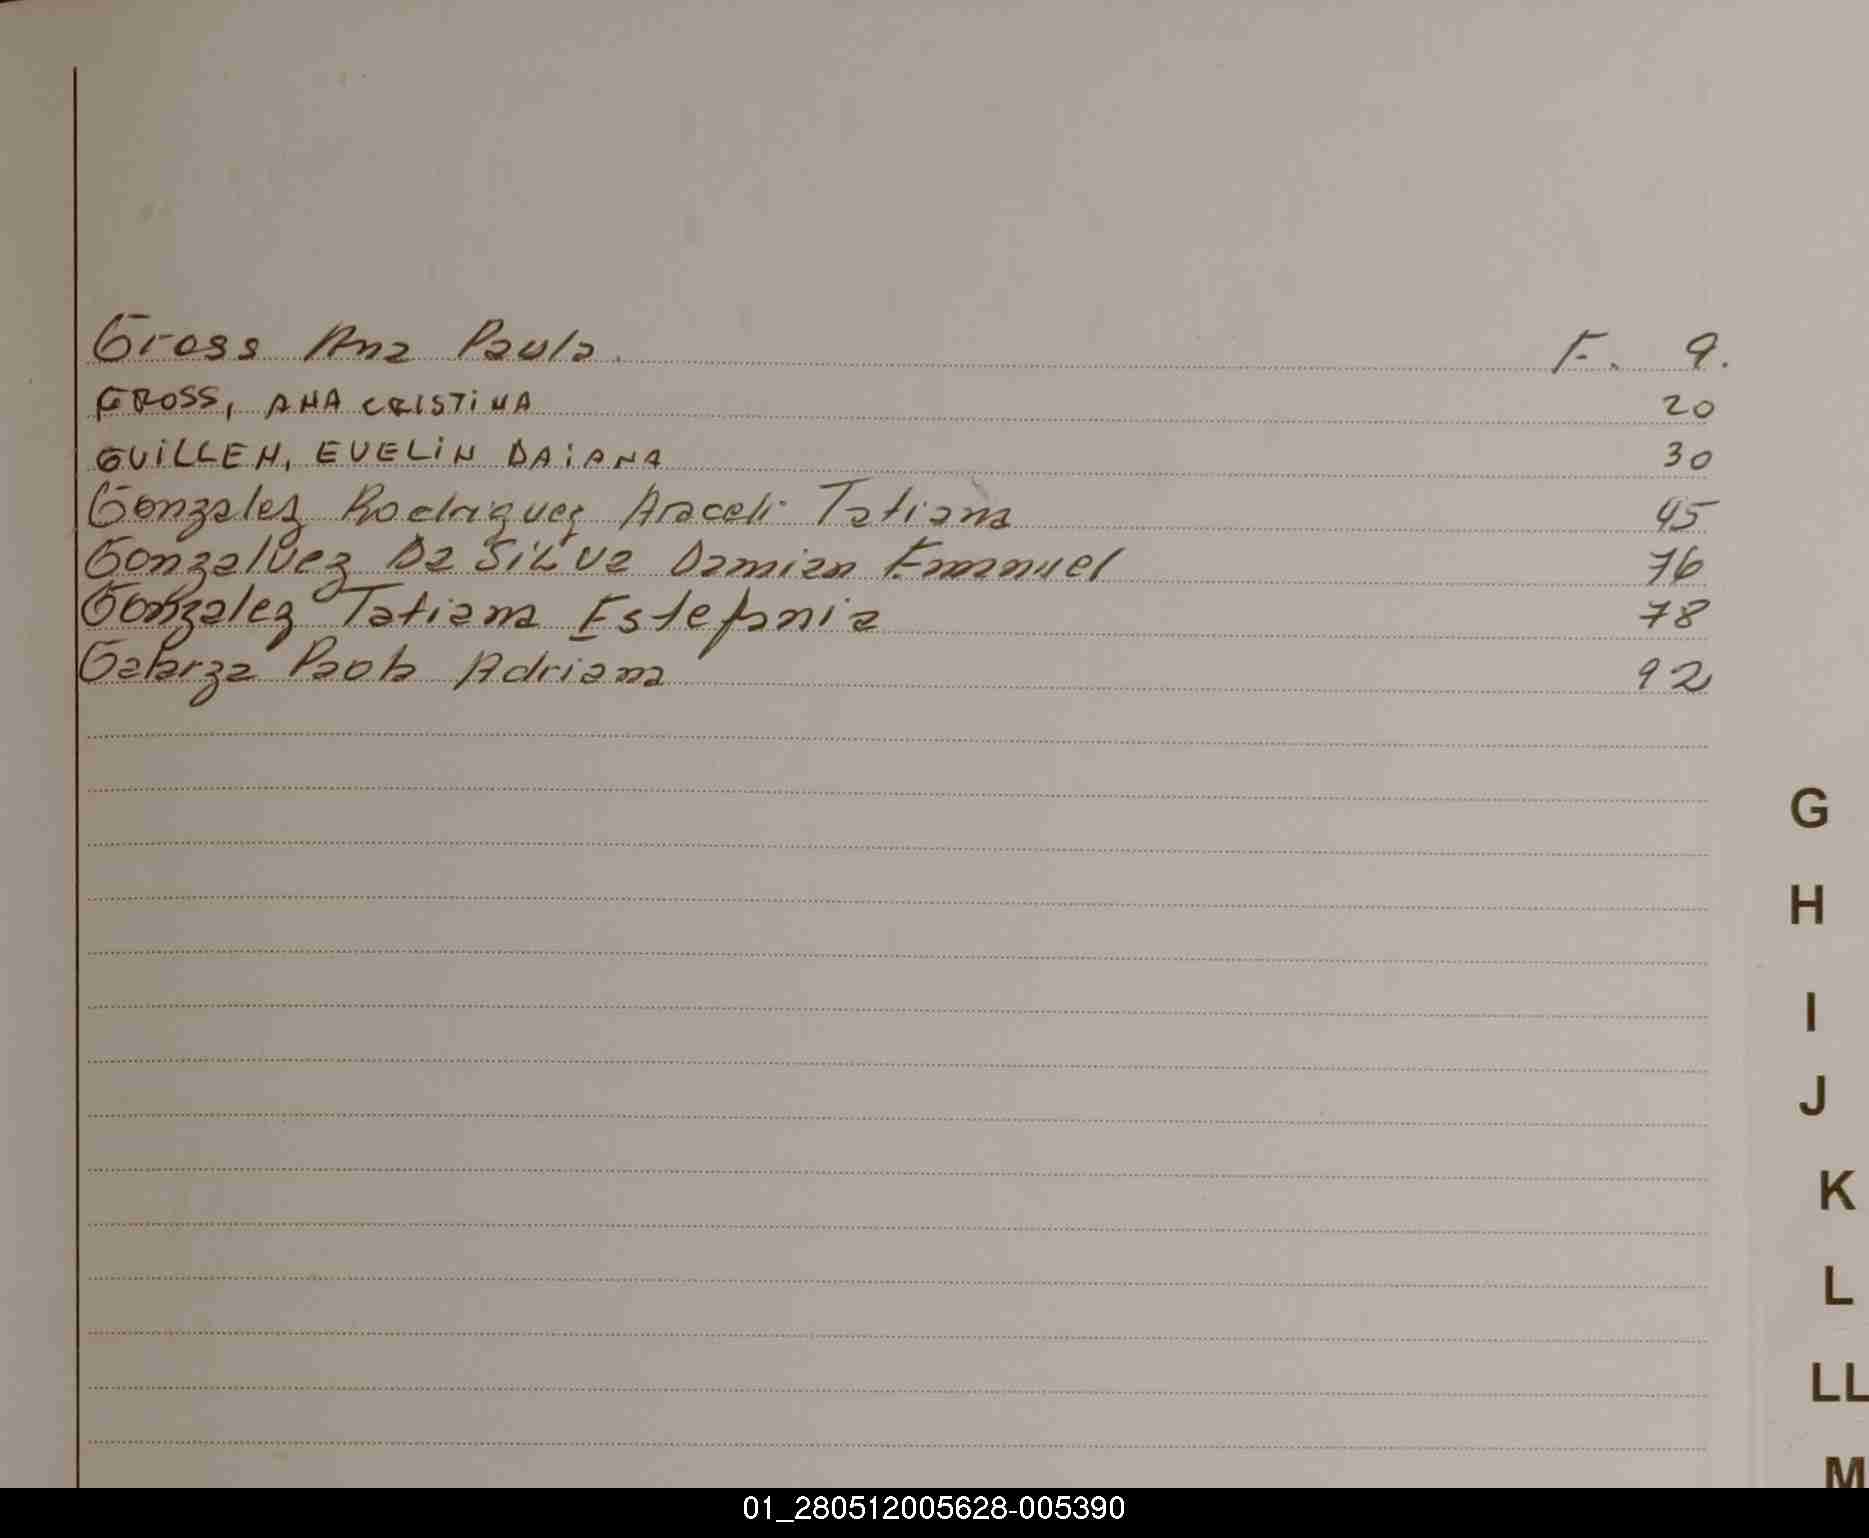 Gross Ana Paula. F. 9.
GROSS, ANA CRISTINA 20
GUILLEN, EVELIN DAIANA 30
Gonzalez Rodriguez Araceli Tatiana 45
Gonzalvez Da SiLva Damian Emanuel 76
Gonzalez Tatiana Estefania 78
Galarza Paola Adriana 92
G
H
I
J
K
L
LL
M
01_280512005628-005390